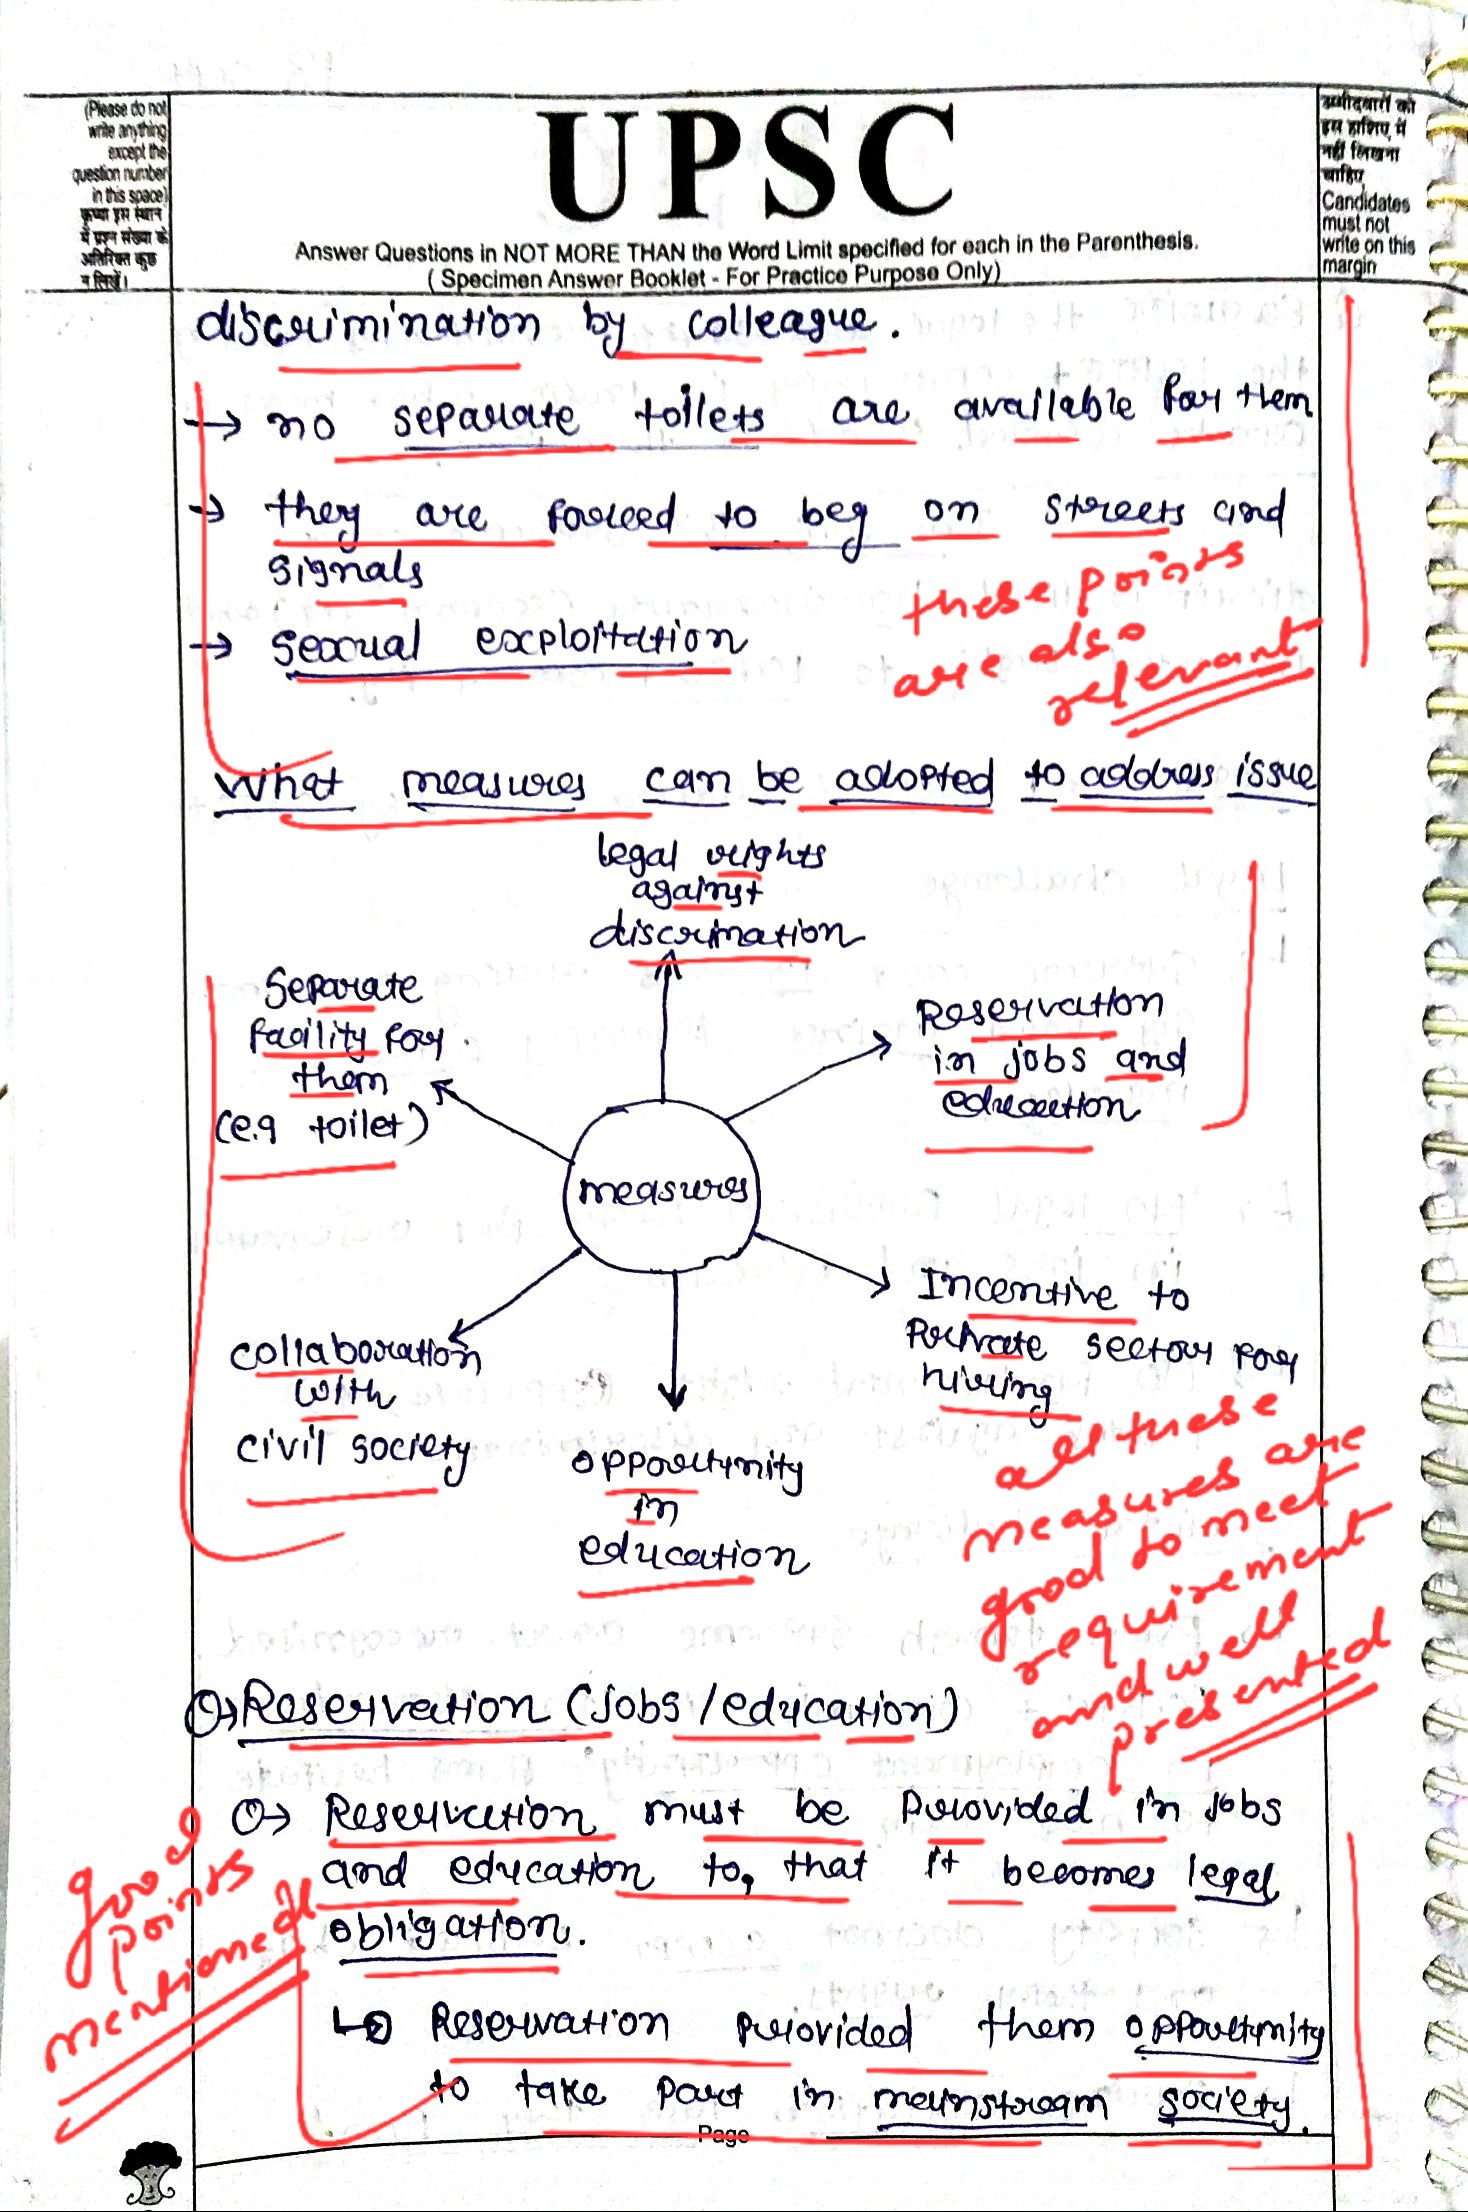 (Please do not
write anything
except the
question number
in this space)
कृप्या इस स्थान
में प्रश्न संख्या के
अतिरिक्त कुछ
न लिखें।
UPSC
Answer Questions in NOT MORE THAN the Word Limit specified for each in the Parenthesis.
( Specimen Answer Booklet - For Practice Purpose Only)
उम्मीदवारों को
इस हाशिए में
नहीं लिखना
चाहिए
Candidates
must not
write on this
margin
discrimination by colleague.
→ no separate toilets are available for them
→ they are forced to beg on streets and
signals
→ sexual exploitation
these points
are also
relevant
What measures can be adopted to address issue
legal rights
against
discrimation
Separate
facility for
them
(e.g toilet)
Reservation
in jobs and
education
measures
Incentive to
Private sector for
hiring
collaboration
with
civil society
opportunity
in
education
all these
measures are
good to meet
requirement
and well
presented
→ Reservation (jobs/education)
→ Reservation must be provided in jobs
and education to, that it becomes legal
obligation.
good
points
mentioned
Reservation provided them opportunity
to take part in mainstream society.
Page